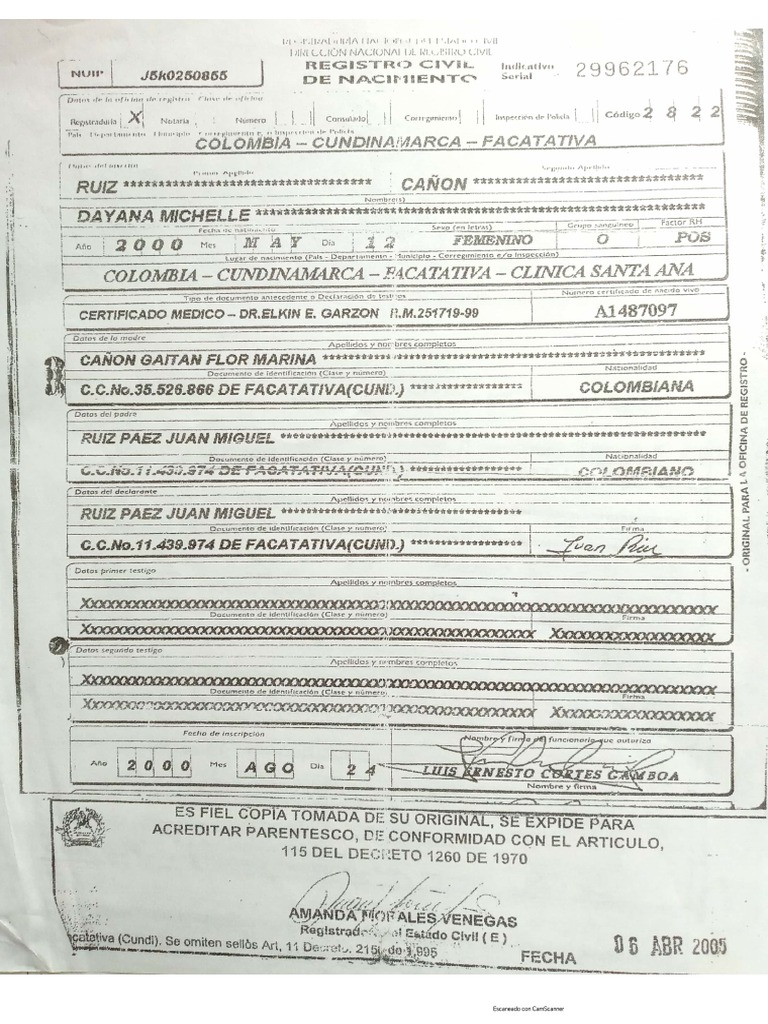 REGISTRADURÍA NACIONAL DEL ESTADO CIVIL
DIRECCIÓN NACIONAL DE REGISTRO CIVIL
REGISTRO CIVIL
DE NACIMIENTO
NUIP J5k0250855
Indicativo Serial 29962176
Datos de la oficina de registro Clase de oficina
Registraduría X Notaría Número Consulado Corregimiento Inspección de Policía Código 2 8 2 2
País Departamento Municipio Corregimiento e/o Inspección de Policía
COLOMBIA – CUNDINAMARCA – FACATATIVA
Datos del inscrito
Primer Apellido Segundo Apellido
RUIZ ******************************** CAÑON ******************************
Nombre(s)
DAYANA MICHELLE ************************************************************
Fecha de nacimiento Sexo (en letras) Grupo sanguíneo Factor RH
Año 2 0 0 0 Mes M A Y Día 1 2 FEMENINO O POS
Lugar de nacimiento (País - Departamento - Municipio - Corregimiento e/o Inspección)
COLOMBIA – CUNDINAMARCA – FACATATIVA – CLINICA SANTA ANA
Tipo de documento antecedente o Declaración de testigos Número certificado de nacido vivo
CERTIFICADO MEDICO – DR.ELKIN E. GARZON R.M.251719-99 A1487097
Datos de la madre
Apellidos y nombres completos
CAÑON GAITAN FLOR MARINA **************************************************
Documento de identificación (Clase y número) Nacionalidad
C.C.No.35.526.866 DE FACATATIVA(CUND.) ***************** COLOMBIANA
Datos del padre
Apellidos y nombres completos
RUIZ PAEZ JUAN MIGUEL *******************************************************
Documento de identificación (Clase y número) Nacionalidad
C.C.No.11.439.974 DE FACATATIVA(CUND.) ***************** COLOMBIANO
Datos del declarante
Apellidos y nombres completos
RUIZ PAEZ JUAN MIGUEL *******************************
Documento de identificación (Clase y número) Firma
C.C.No.11.439.974 DE FACATATIVA(CUND.) ***************** Juan Ruiz
Datos primer testigo
Apellidos y nombres completos
Xxxxxxxxxxxxxxxxxxxxxxxxxxxxxxxxxxxxxxxxxxxxxxxxxxxxxxxxxxxxxxxxxx
Documento de identificación (Clase y número) Firma
Xxxxxxxxxxxxxxxxxxxxxxxxxxxxxxxxxxxxxxxxxxxxxx Xxxxxxxxxxxxxxxxxx
Datos segundo testigo
Apellidos y nombres completos
Xxxxxxxxxxxxxxxxxxxxxxxxxxxxxxxxxxxxxxxxxxxxxxxxxxxxxxxxxxxxxxxxxx
Documento de identificación (Clase y número) Firma
Xxxxxxxxxxxxxxxxxxxxxxxxxxxxxxxxxxxxxxxxxxxxxx Xxxxxxxxxxxxxxxxxx
Fecha de inscripción Nombre y firma de funcionario que autoriza
Año 2 0 0 0 Mes A G O Día 2 4 LUIS ERNESTO CORTES GAMBOA
Nombre y firma
- ORIGINAL PARA LA OFICINA DE REGISTRO -
ES FIEL COPIA TOMADA DE SU ORIGINAL, SE EXPIDE PARA
ACREDITAR PARENTESCO, DE CONFORMIDAD CON EL ARTICULO,
115 DEL DECRETO 1260 DE 1970
AMANDA MORALES VENEGAS
Registradora del Estado Civil ( E )
catativa (Cundi). Se omiten sellos Art, 11 Decreto. 2150 do 1,995
FECHA 06 ABR 2005
Escaneado con CamScanner